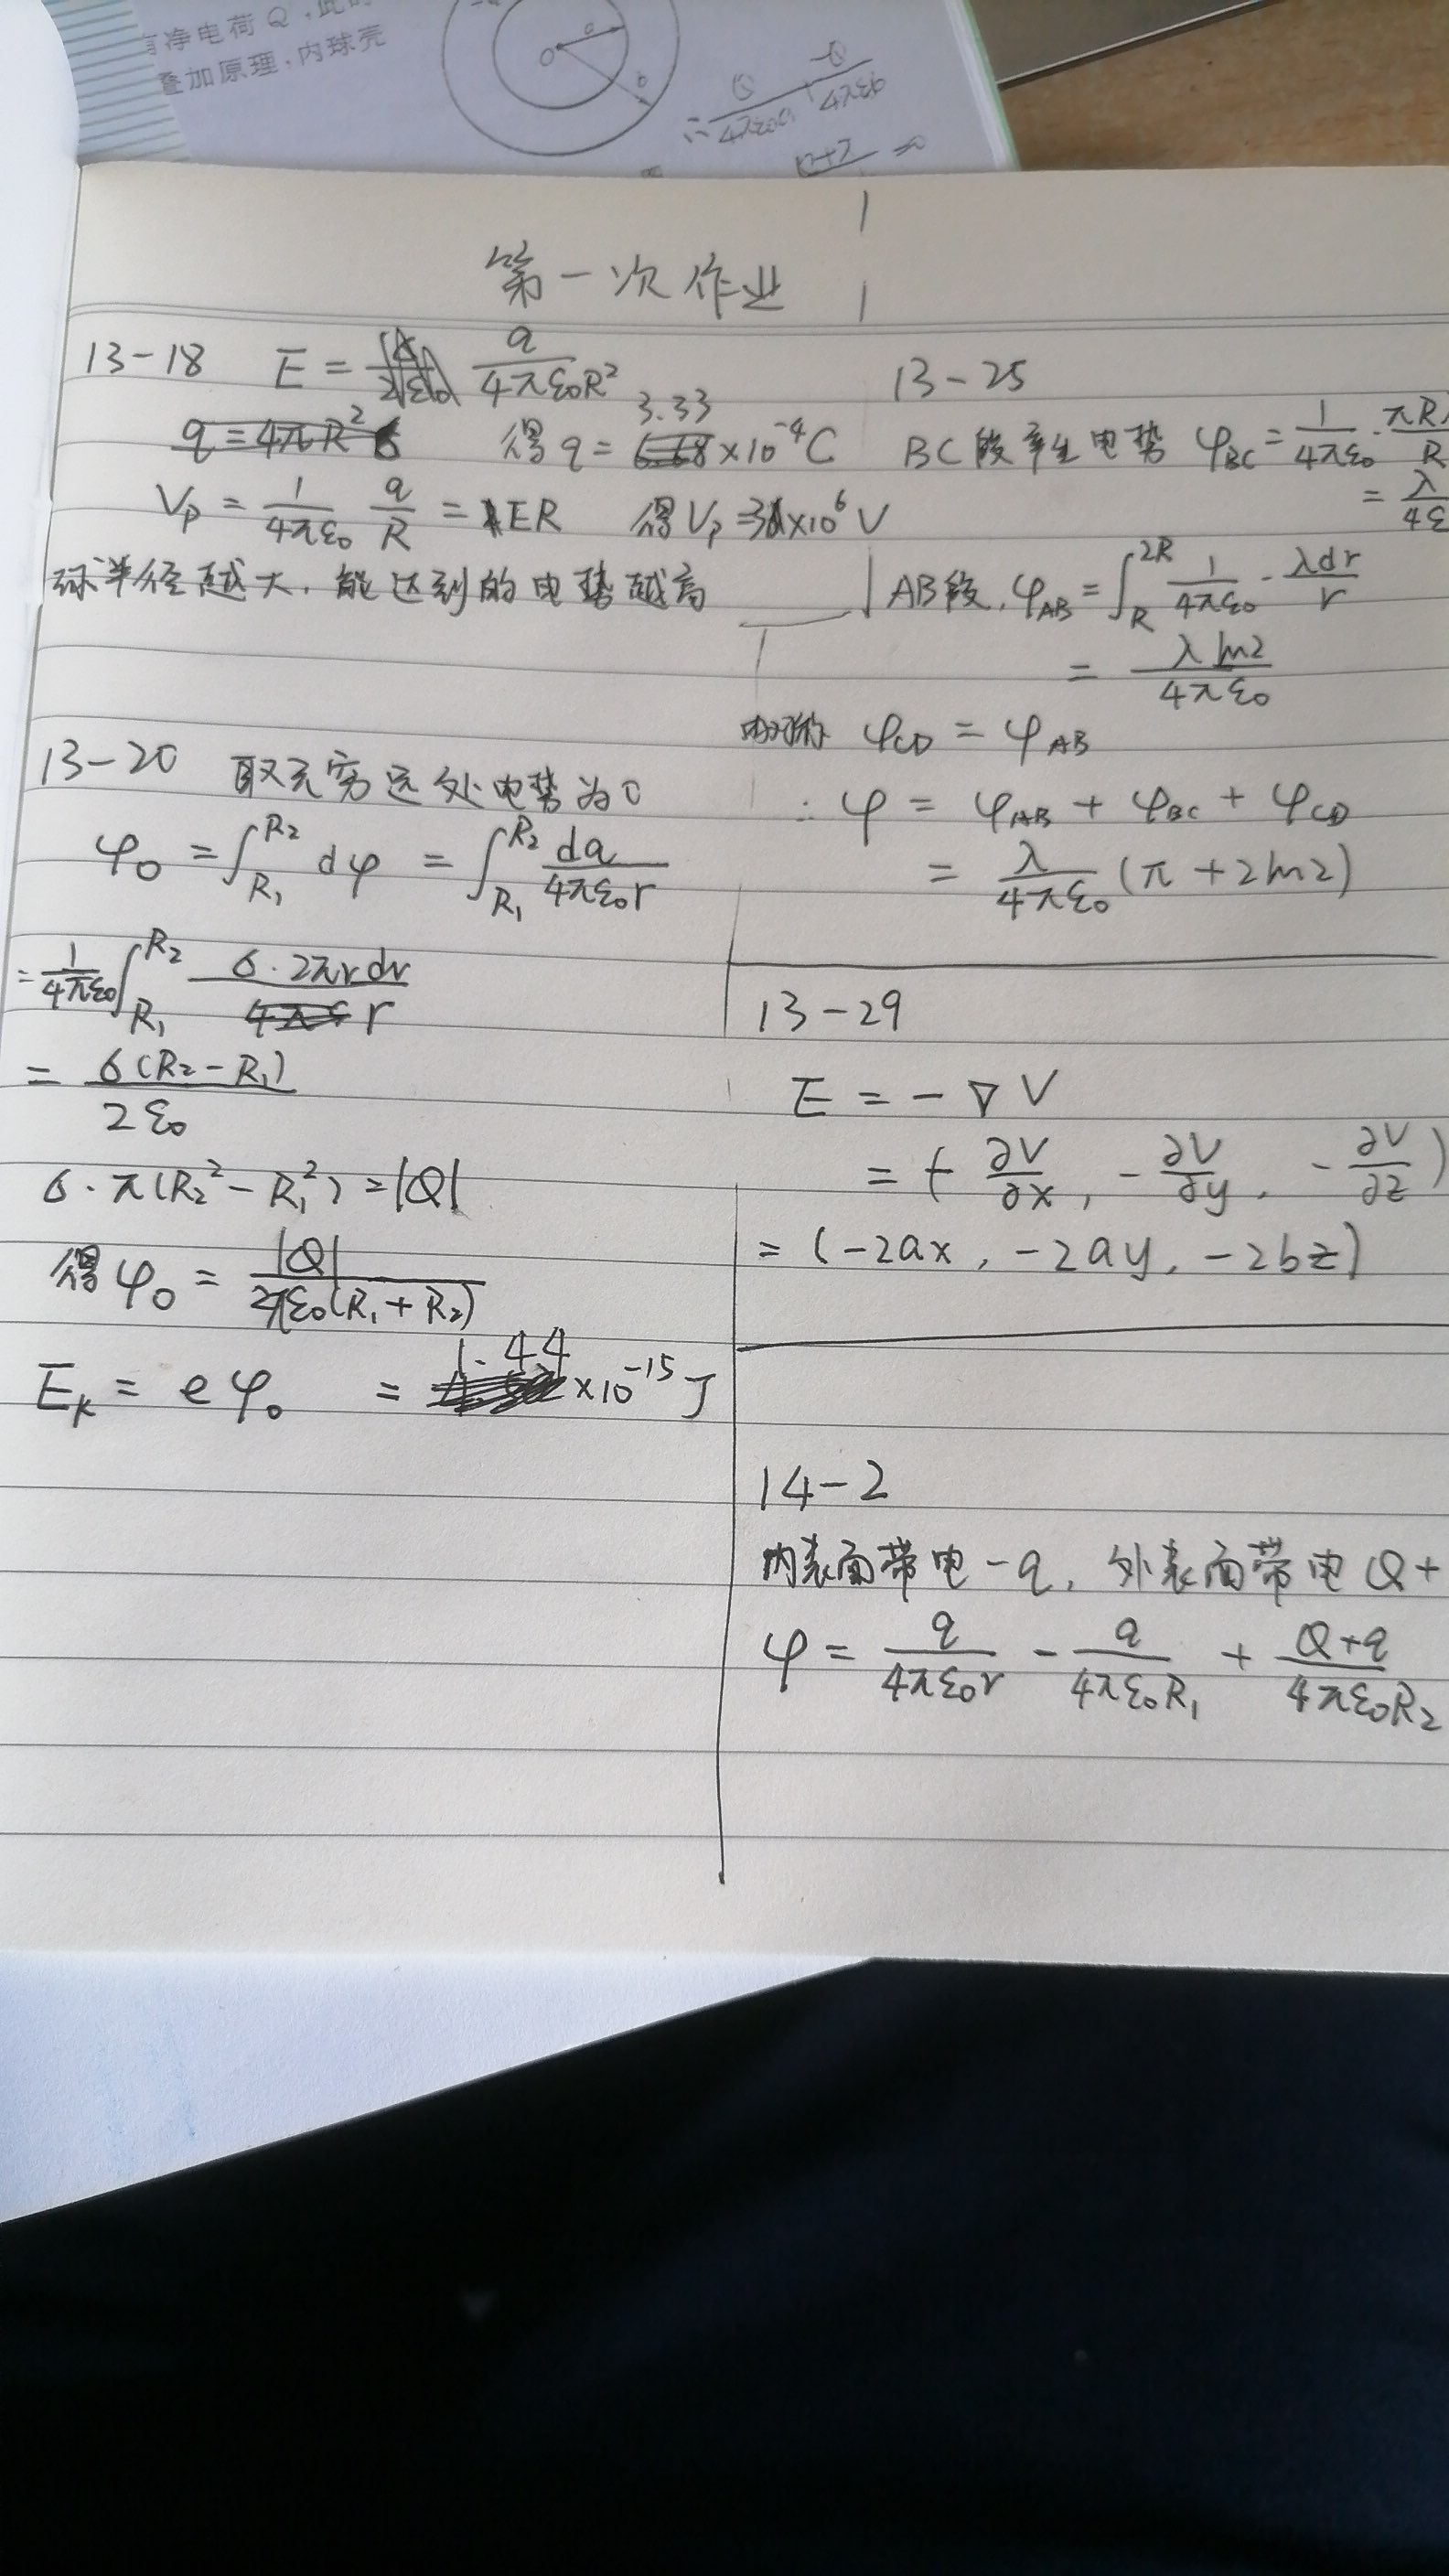 有净电荷 Q，此时
叠加原理，内球壳
O a b
∴ Q/4πε₀a + -Q/4πε₀b
第一次作业
13-18 E = q/4πε₀R²
得 q = 3.33×10⁻⁴C
V_P = 1/4πε₀ q/R = ER 得 V_P = 3×10⁶V
球半径越大，能达到的电势越高
13-20 取无穷远处电势为0
φ₀ = ∫_{R₁}^{R₂} dφ = ∫_{R₁}^{R₂} dq/4πε₀r
= 1/4πε₀ ∫_{R₁}^{R₂} σ·2πrdr/r
= σ(R₂-R₁)/2ε₀
σ·π(R₂²-R₁²) = |Q|
得 φ₀ = |Q|/2πε₀(R₁+R₂)
E_k = eφ₀ = 1.44×10⁻¹⁵J
13-25
BC段产生电势 φ_BC = 1/4πε₀ · πRλ/R
= λ/4ε
AB段，φ_AB = ∫_R^{2R} 1/4πε₀ · λdr/r
= λln2/4πε₀
由对称 φ_CD = φ_AB
∴ φ = φ_AB + φ_BC + φ_CD
= λ/4πε₀ (π + 2ln2)
13-29
E = -∇V
= (-∂V/∂x, -∂V/∂y, -∂V/∂z)
= (-2ax, -2ay, -2bz)
14-2
内表面带电 -q，外表面带电 Q+
φ = q/4πε₀r - q/4πε₀R₁ + Q+q/4πε₀R₂